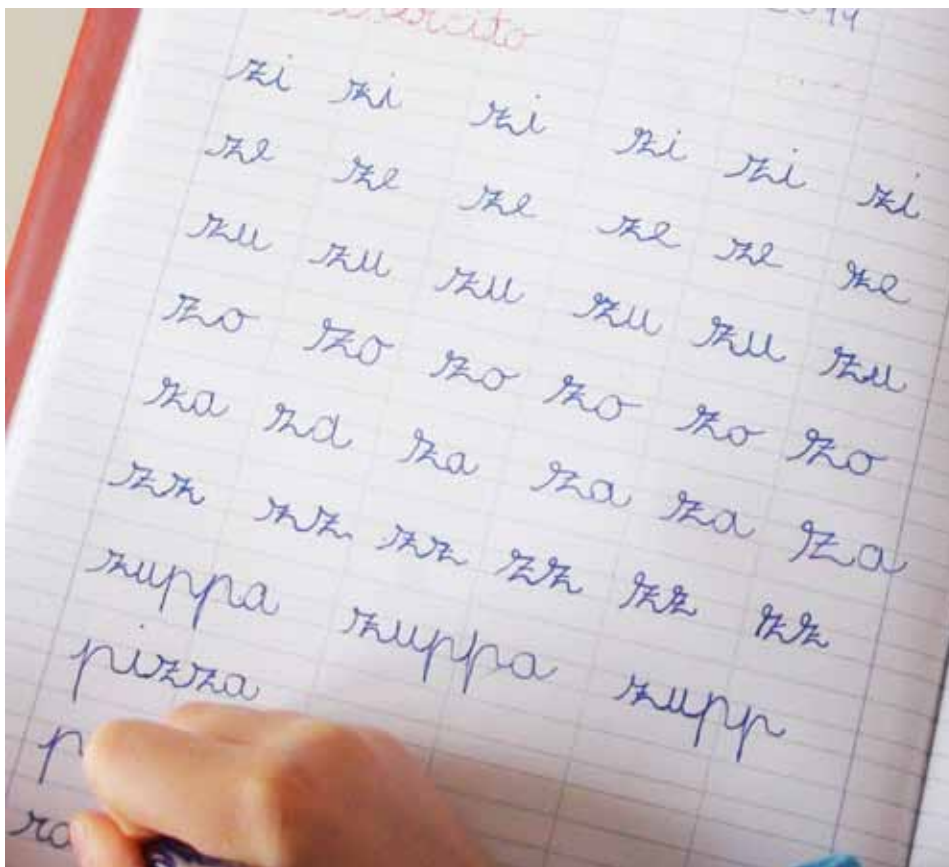 zi zi zi zi zi zi
ze ze ze ze ze ze
zu zu zu zu zu zu
zo zo zo zo zo zo
za za za za za za
zz zz zz zz zz zz
zuppa zuppa zupp
pizza
p